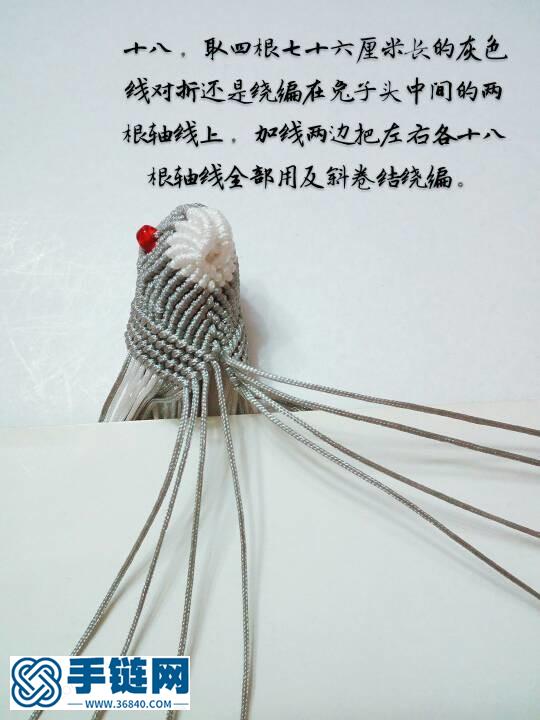 十八，取四根七十六厘米长的灰色
线对折还是绕编在兔子头中间的两
根轴线上，加线两边把左右各十八
根轴线全部用反斜卷结绕编。
手链网
WWW.36840.COM